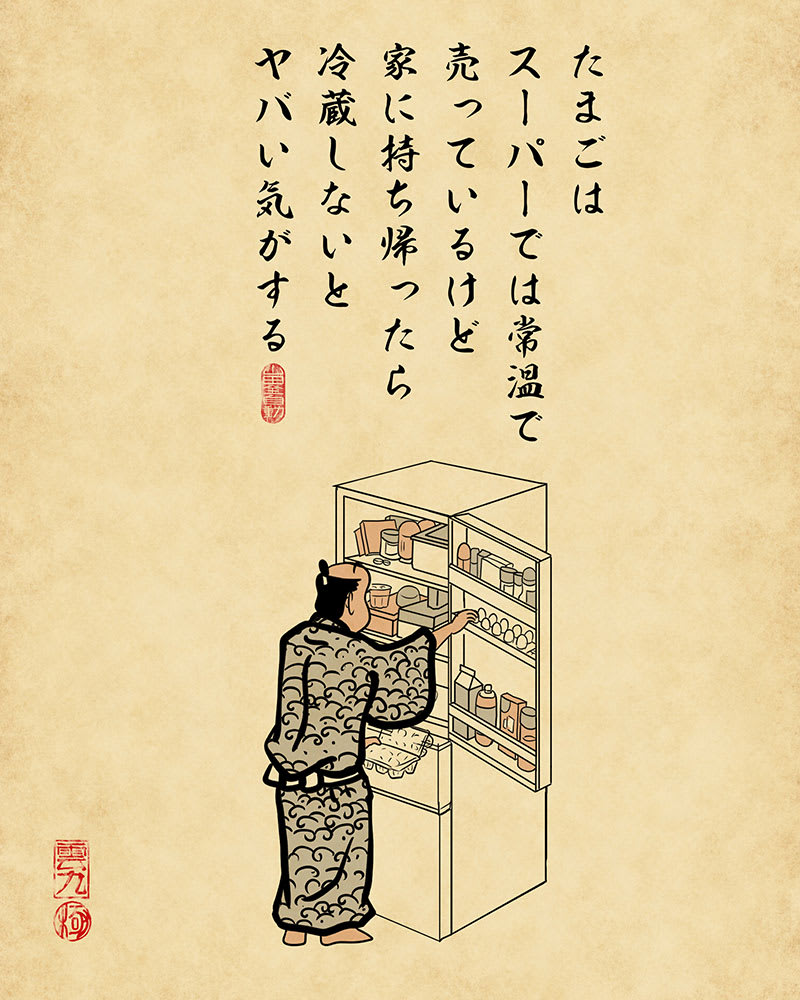 たまごは
スーパーでは常温で
売っているけど
家に持ち帰ったら
冷蔵しないと
ヤバい気がする